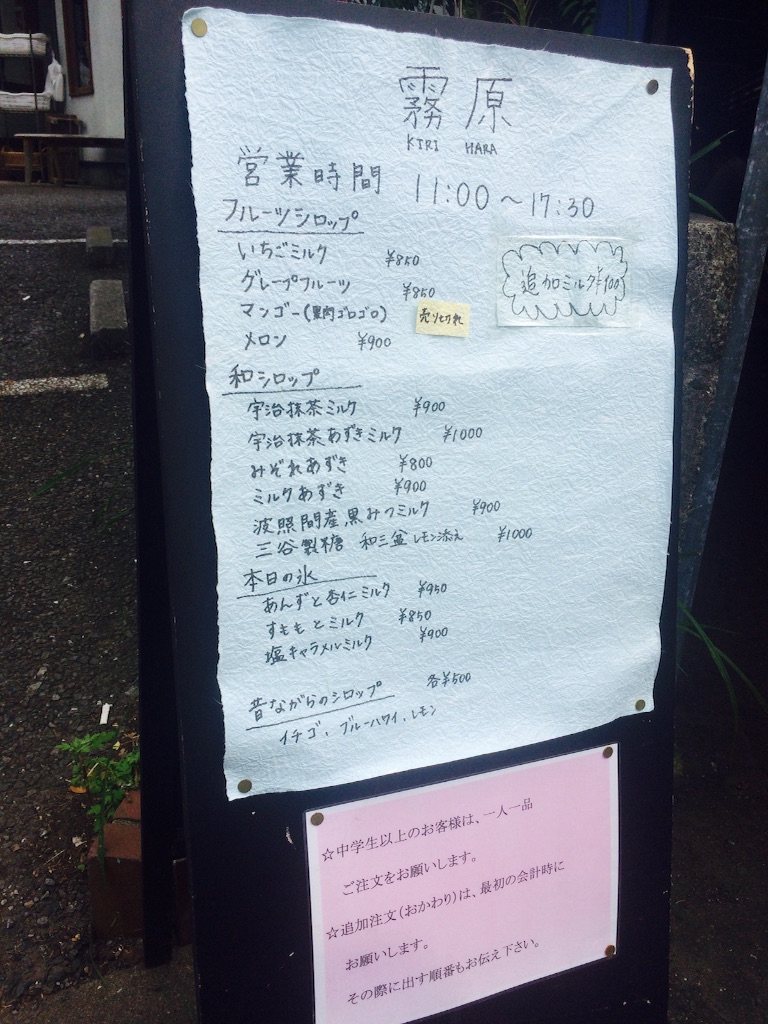 霧原
KIRI HARA
営業時間 11:00～17:30
フルーツシロップ
いちごミルク ¥850
グレープフルーツ ¥850
マンゴー(果肉ゴロゴロ) 売り切れ
メロン ¥900
追加ミルク¥100
和シロップ
宇治抹茶ミルク ¥900
宇治抹茶あずきミルク ¥1000
みぞれあずき ¥800
ミルクあずき ¥900
波照間産黒みつミルク ¥900
三谷製糖 和三盆 レモン添え ¥1000
本日の氷
あんずと杏仁ミルク ¥950
すももとミルク ¥850
塩キャラメルミルク ¥900
昔ながらのシロップ 各¥500
イチゴ、ブルーハワイ、レモン
☆中学生以上のお客様は、一人一品
ご注文をお願いします。
☆追加注文(おかわり)は、最初の会計時に
お願いします。
その際に出す順番もお伝え下さい。